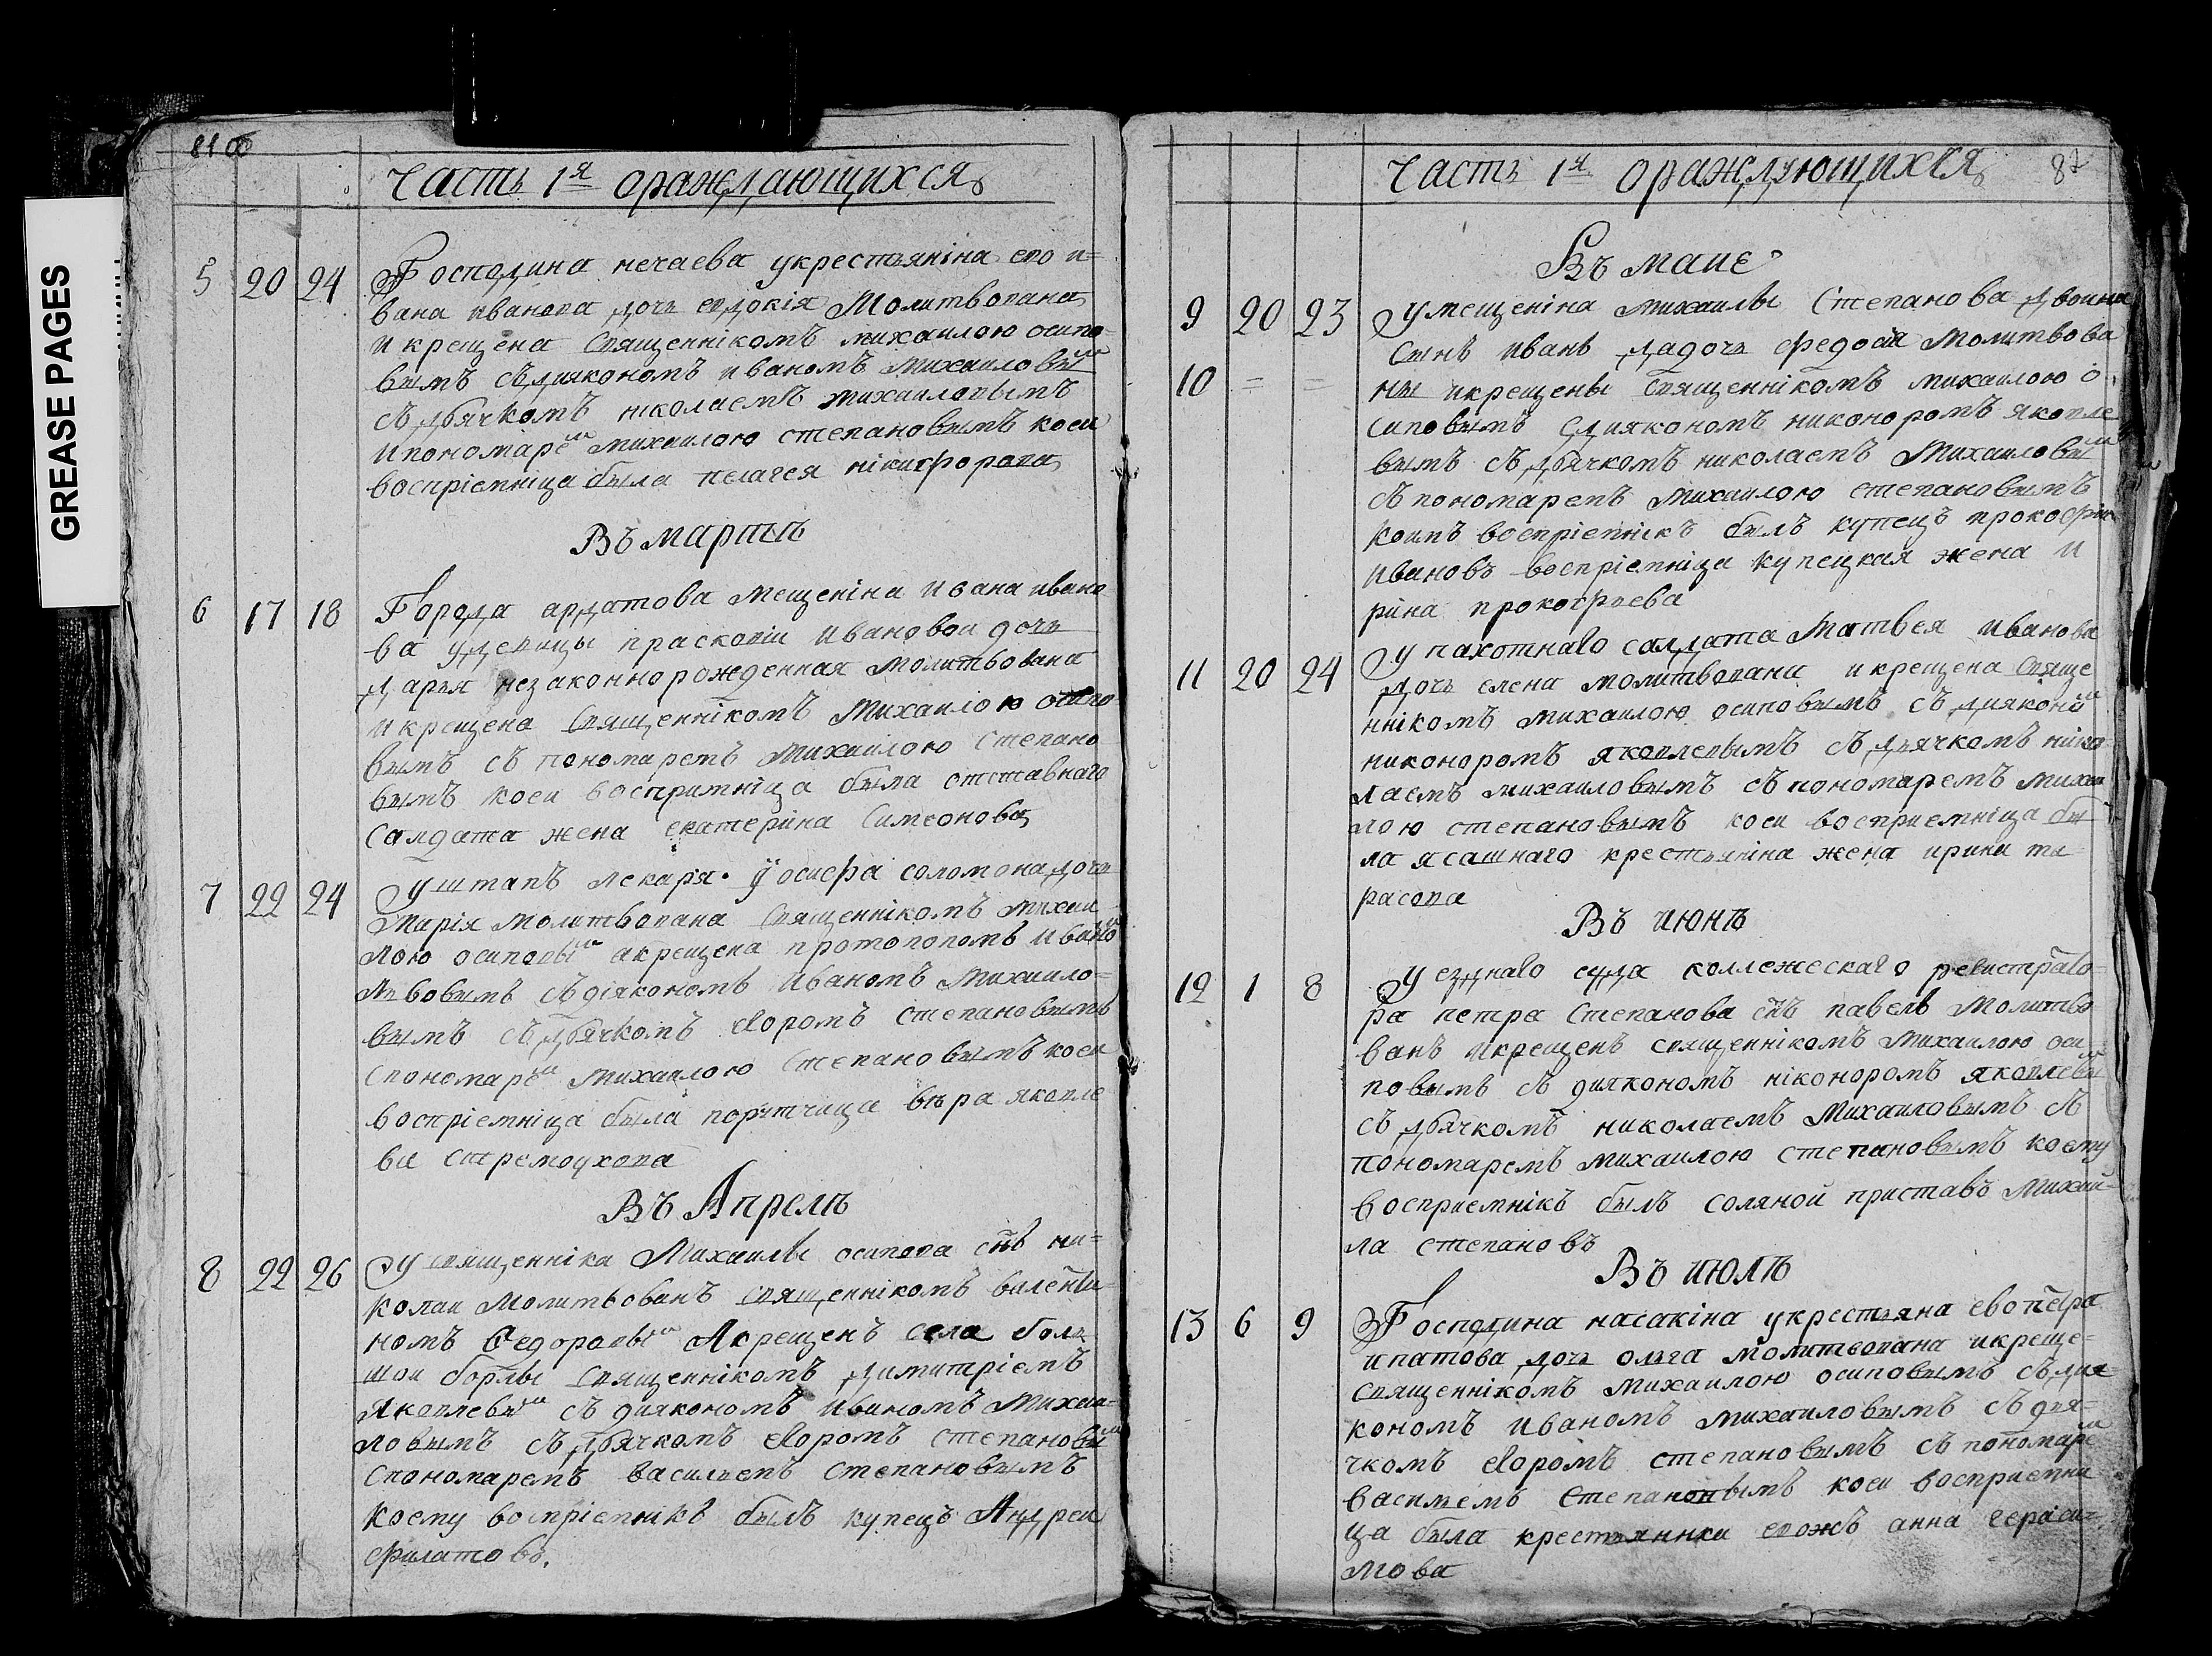 GREASE PAGES
81 об
Часть 1я ораждающихся
5 20 24 Господина нечаева укрестьяніна ево и=
вана иванова дочь евдокія Молитвована
и крещена Священнікомъ михаилою осипо
вымъ съдиякономъ иваномъ михаиловым
съ дьячкомъ николаемъ михаиловымъ
ипономарем михаилою степановымъ коеи
воспріемніца была пелагея нікифорова
Въ мартѣ
6 17 18 Города ардатова мещеніна ивана ивано
ва удевицы прасковіи ивановои дочь
дарья незаконнорожденная молитвована
и крещена Священнікомъ Михаилою осипо
вымъ съ пономаремъ михаилою степано
вымъ коеи восприемніца была отставнаго
салдата жена екатеріна Симеонова
7 22 24 У штапъ лекаря иосифа соломона дочь
Марія молитвована Священнікомъ михаи
лою осиповым акрещена протопопомъ ивано
Львовымъ съдіякономъ Иваномъ Михаило=
вымъ съ дьячкомъ егоромъ степановымъ
спономарем Михаилою Степановымъ коеи
воспріемніца была порутчица вѣра яковле
ва стремоухова
Въ Апрелѣ
8 22 26 У священніка Михаилы осипова снъ ни=
колаи Молитвованъ священнікомъ валенти=
номъ Федоровым Акрещенъ села боль
шои борлы священнікомъ димитріемъ
Яковлевым съ диякономъ иваномъ Михаи=
ловымъ съ дьячкомъ егоромъ степановым
спономаремъ васильемъ степановымъ
коему воспріемнікъ былъ купецъ Андреи
филатовъ.
Часть 1я ораждающихся 82
Въ маие
9 20 23 У мещеніна михаилы Степанова двоина
сынъ иванъ дадочь федосия молитвова
10 = = ны икрещены священнікомъ михаилою о
сиповымъ сдиякономъ никоноромъ яковле
вымъ съ дьячкомъ николаемъ Михаиловым
съ пономаремъ михаилою степановымъ
коимъ воспріемнікъ былъ купецъ прокофіи
ивановъ воспріемніца купецкая жена и
ріна прокофьева
11 20 24 У пахотнаго салдата Матвея иванова
дочь елена молитвована и крещена Священ
нікомъ михаилою осиповымъ съ дияконом
никоноромъ яковлевымъ съ дьячкомъ нико
лаемъ михаиловымъ съ пономаремъ михаи
лою степановымъ коеи восприемніца бы
ла ясашнаго крестьяніна жена ирина та=
расова
Въ июнѣ
12 1 8 У езднаго суда коллежескаго регистрато=
ра петра Степанова снъ павелъ молитво
ванъ икрещенъ священнікомъ Михаилою оси
повымъ съ диякономъ ніконоромъ яковлевым
съ дьячкомъ николаемъ Михаиловымъ съ
пономаремъ михаилою степановымъ коему
восприемнікъ былъ соляной приставъ михаи
ла степановъ
Въ июлѣ
13 6 9 Господина насакіна укрестьяна ево петра
ипатова дочь ольга молитвована икреще=
священнікомъ михаилою осиповымъ съ дия=
кономъ иваномъ михаиловымъ съ дья=
чкомъ егоромъ степановымъ съ пономарем
васильемъ степановымъ коеи восприемни
ца была крестьянина евожъ анна гераси=
мова